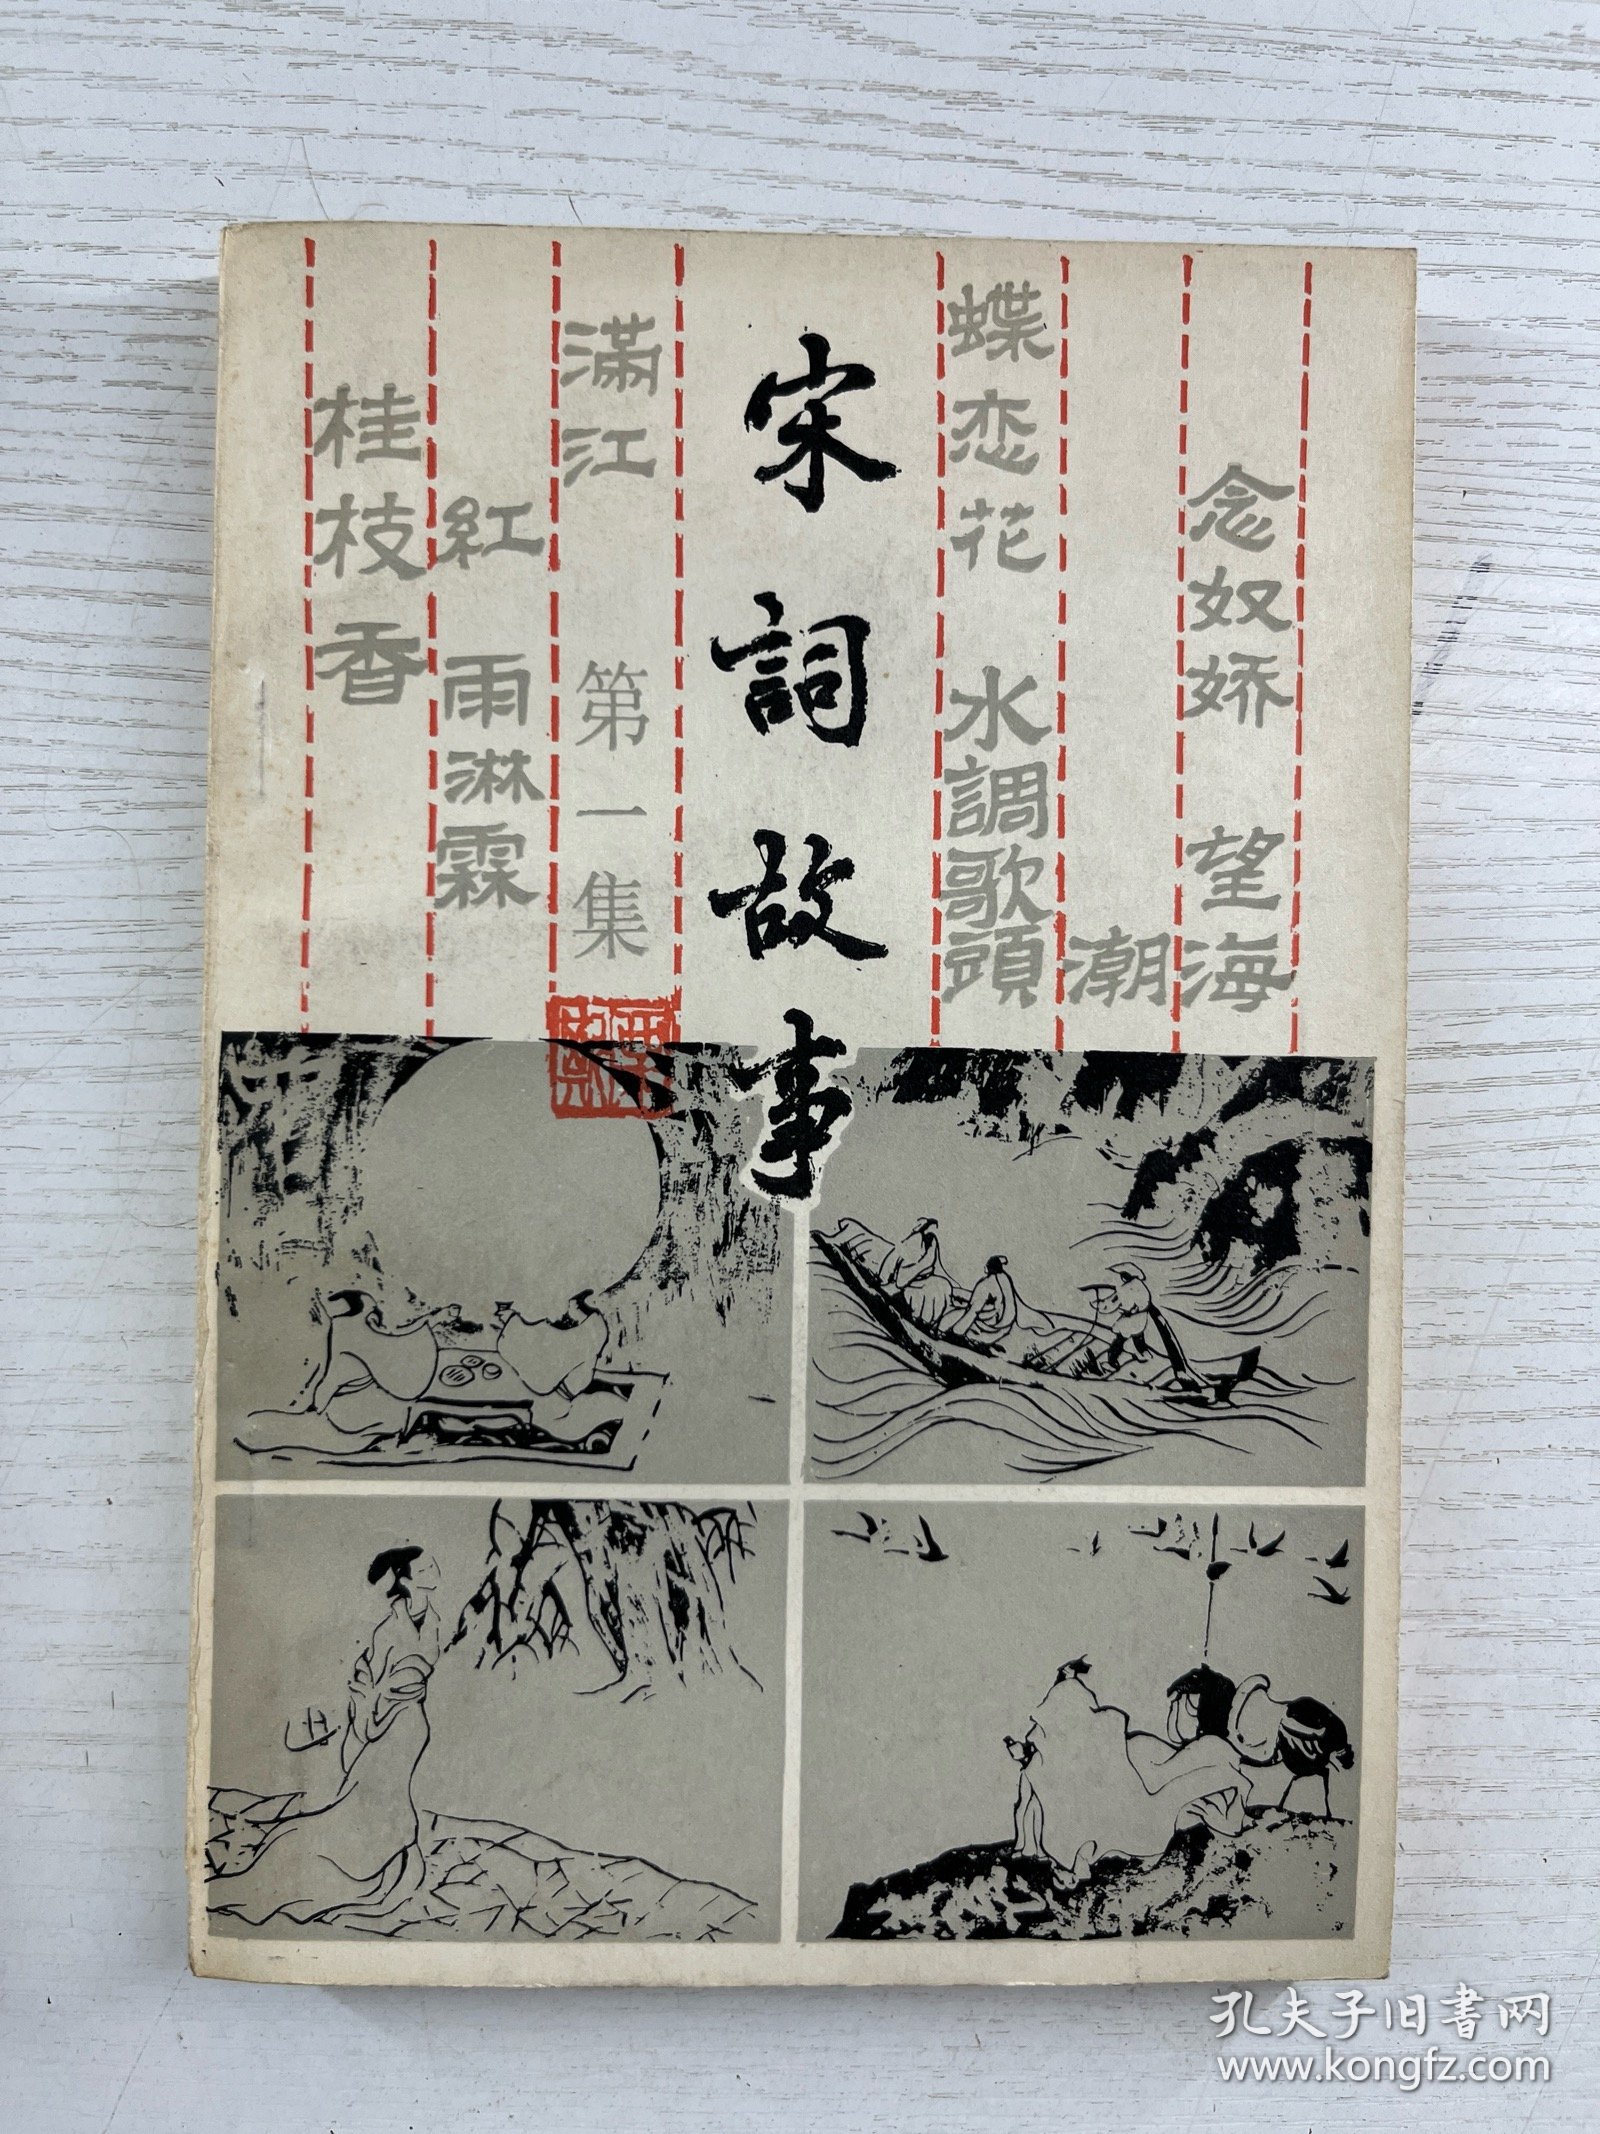 念奴娇 望海
潮
蝶恋花 水調歌頭
宋詞故事
滿江
紅 雨淋霖
桂枝香
第一集
孔夫子旧书网
www.kongfz.com